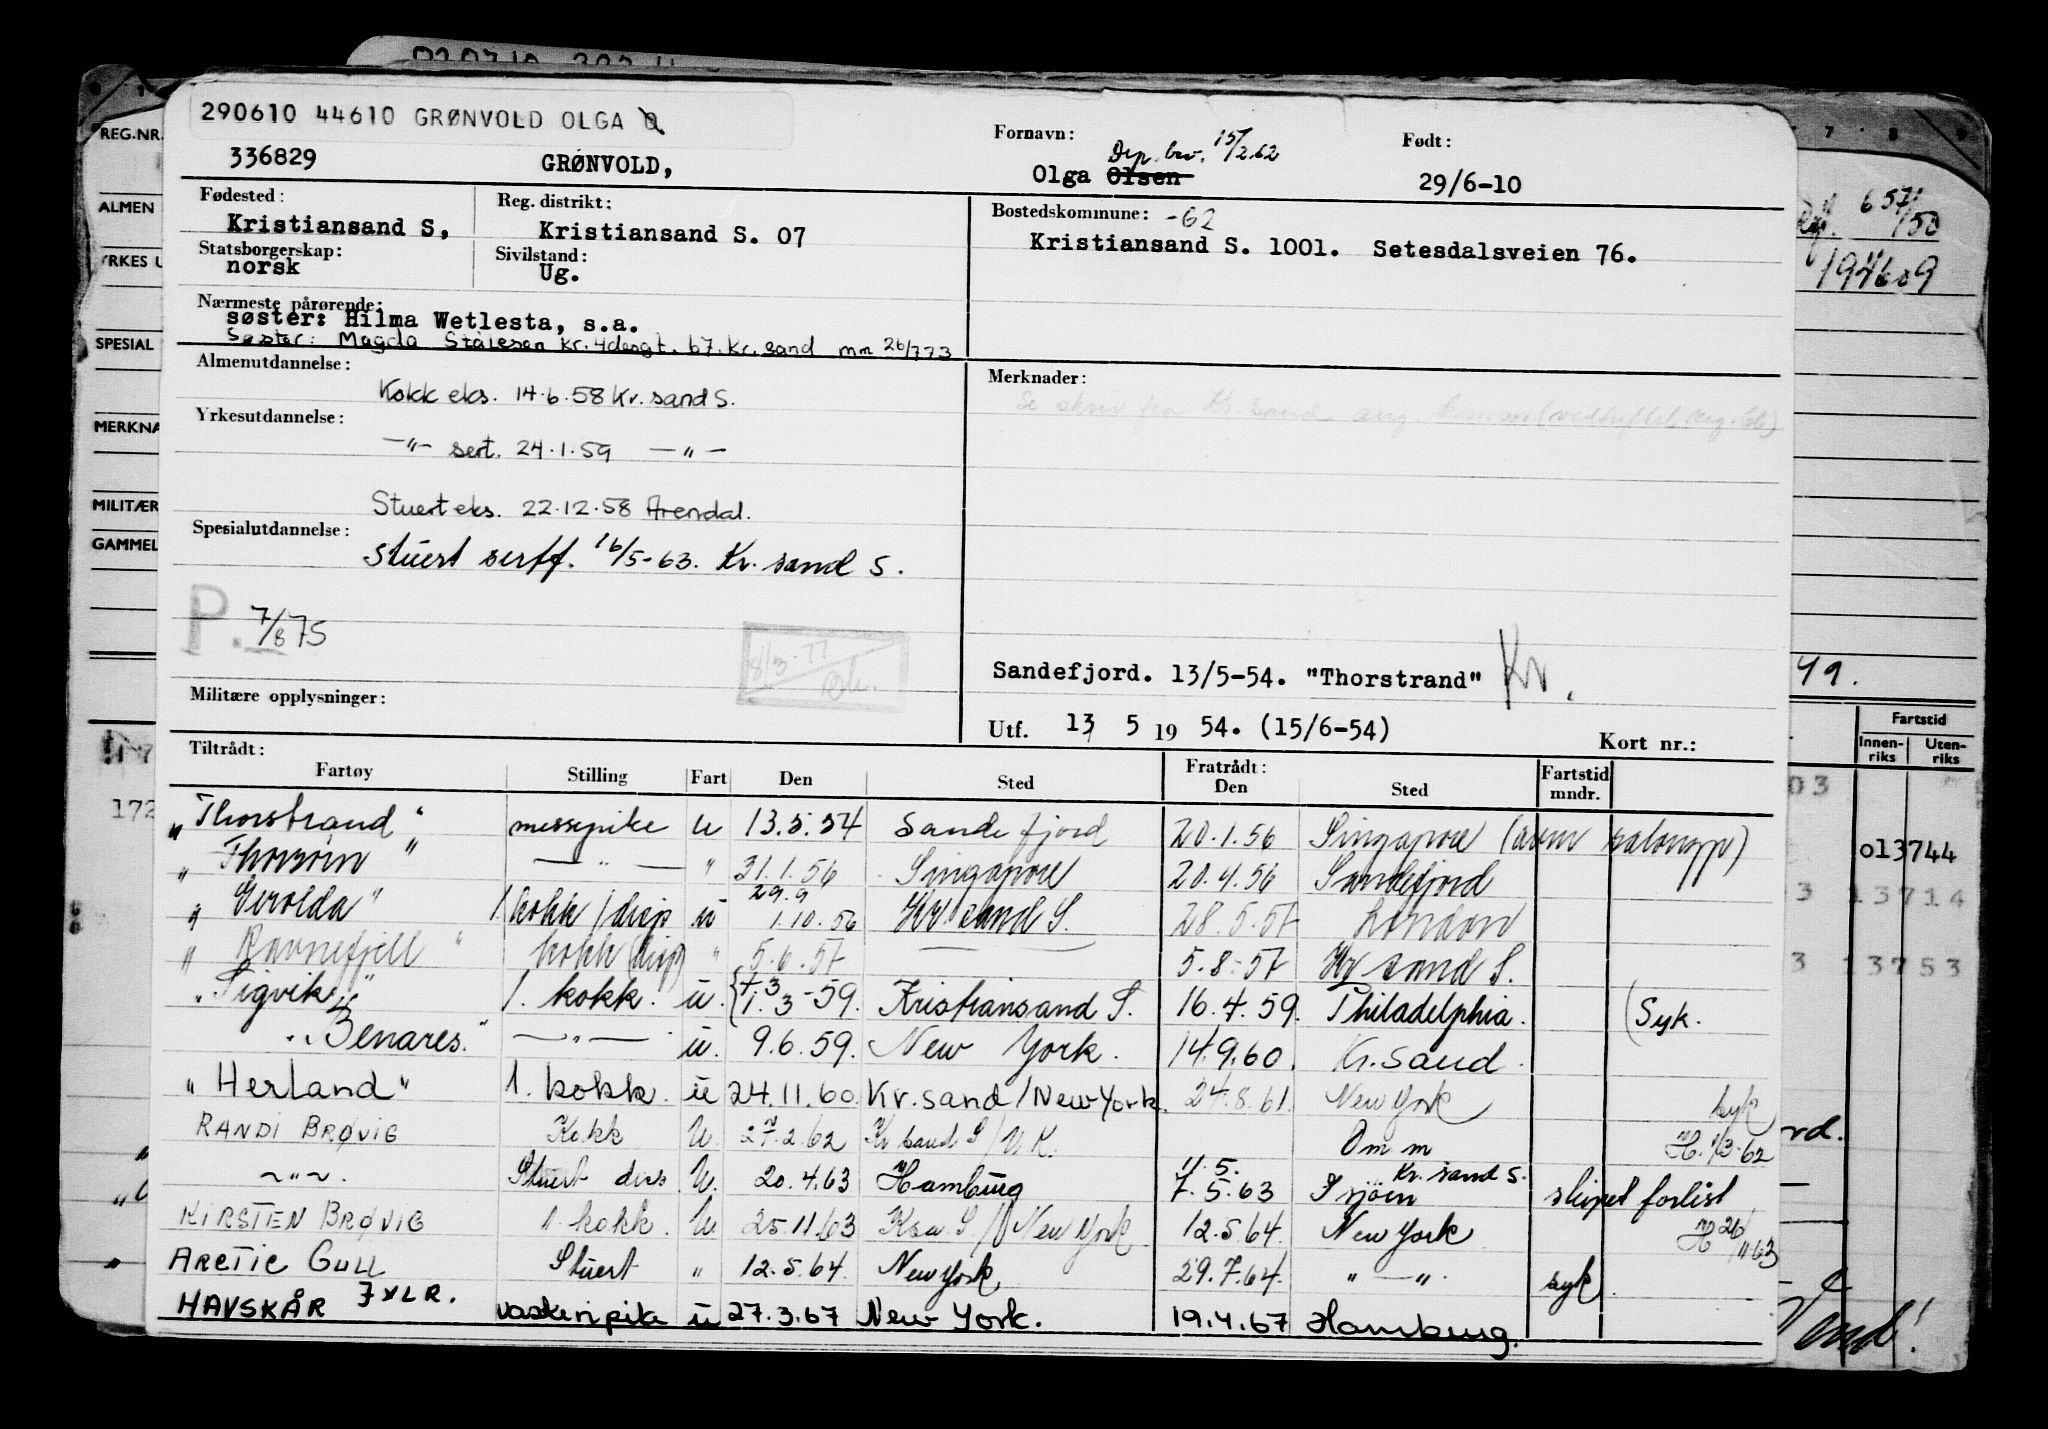 290610 44610 GRØNVOLD OLGA O
336829 GRØNVOLD,
Fornavn: Født:
Dep. brv. 15/2.62
Olga Olsen 29/6-10
Fødested: Reg. distrikt: Bostedskommune: -62
Kristiansand S, Kristiansand S. 07 Kristiansand S. 1001. Setesdalsveien 76.
Statsborgerskap: Sivilstand:
norsk Ug.
Nærmeste pårørende:
søster: Hilma Wetlesta, s.a.
Søster: Magda Stålesen kr. 4desgt. 67. Kr. sand mm 26/773
Almenutdannelse: Merknader:
Kokk eks. 14.6.58 Kr. sand S.
Yrkesutdannelse:
—"— sert. 24.1.59 —"—
Stuert eks. 22.12.58 Arendal.
Spesialutdannelse:
Stuert sertf. 16/5-63. Kr. sand S.
P. 7/8 75
8/3-77
Sandefjord. 13/5-54. "Thorstrand" Kr.
Militære opplysninger:
Utf. 13 5 19 54. (15/6-54) Kort nr.:
Tiltrådt: Fratrådt:
Fartøy Stilling Fart Den Sted Den Sted Fartstid mndr.
"Thorstrand" messepike u 13.5.54 Sandefjord 20.1.56 Singapore
"Thorsøin" —"— " 31.1.56 Singapore 20.4.56 Sandefjord
29.9
"Gerolda" 1. kokk/disp u 1.10.56 Kr. sand S. 28.5.57 London
"Ravnefjell" kokk (disp) " 5.6.57 —— 5.8.57 Kr sand S.
"Sigvik" 1. kokk. u. 1.3-59. Kristiansand S. 16.4.59. Philadelphia. (Syk.
"Benares." —"— u. 9.6.59. New York. 14.9.60. Kr. sand.
"Herland" 1. kokk. u 24.11.60. Kr. sand/New York. 24.8.61. New York syk
RANDI BRØVIG Kokk U. 27.2.62 Kr sand S/ Om m H. 1/3-62
11.5. Kr. sand S.
~"~. Stuert U. 20.4.63 Hamburg 7.5.63 I sjøen skipet forlist
KIRSTEN BRØVIG 1. kokk. U. 25.11.63 Ksa S/New York 12.5.64. New York H 26/11 63
ARCTIC GULL Stuert " 12.5.64. New York 29.7.64. "—". syk
HAVSKÅR JXLR. vaskeripike u 27.3.67 New York. 19.4.67 Hamburg.
REG.NR.
ALMEN
YRKES U
SPESIAL
MERKNA
MILITÆR
GAMMEL
172
7 8 9
657/50
194609
49.
Fartstid
Innenriks Utenriks
03
013744
3 13714
3 13753
rd.
Vend!